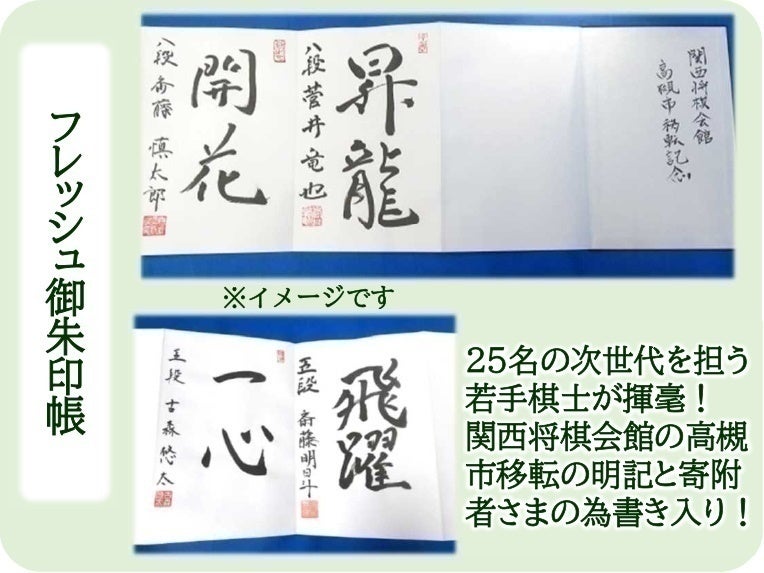 フレッシュ御朱印帳
関西将棋会館
高槻市移転記念
昇龍
八段 菅井竜也
開花
八段 斎藤慎太郎
※イメージです
飛躍
五段 斎藤明日斗
一心
五段 古森悠太
25名の次世代を担う
若手棋士が揮毫！
関西将棋会館の高槻
市移転の明記と寄附
者さまの為書き入り！